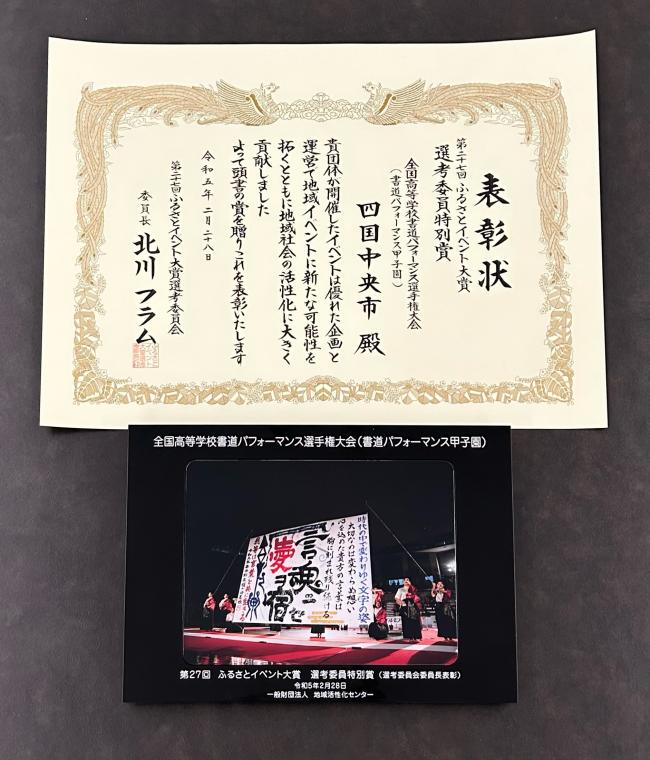 表彰状
第二十七回 ふるさとイベント大賞
選考委員特別賞
全国高等学校書道パフォーマンス選手権大会
（書道パフォーマンス甲子園）
四国中央市 殿
貴団体が開催したイベントは優れた企画と
運営で地域イベントに新たな可能性を
拓くとともに地域社会の活性化に大きく
貢献しました
よって頭書の賞を贈りこれを表彰いたします
令和五年 二月 二十八日
第二十七回ふるさとイベント大賞選考委員会
委員長 北川 フラム
全国高等学校書道パフォーマンス選手権大会（書道パフォーマンス甲子園）
時代の中で変わりゆく文字の姿
大切なのは変わらぬ想い
心を込めた貴方の言葉は
胸に刻まれ残り続ける
言魂
夢ヲ宿
第27回 ふるさとイベント大賞 選考委員特別賞（選考委員会委員長表彰）
令和5年2月28日
一般財団法人 地域活性化センター